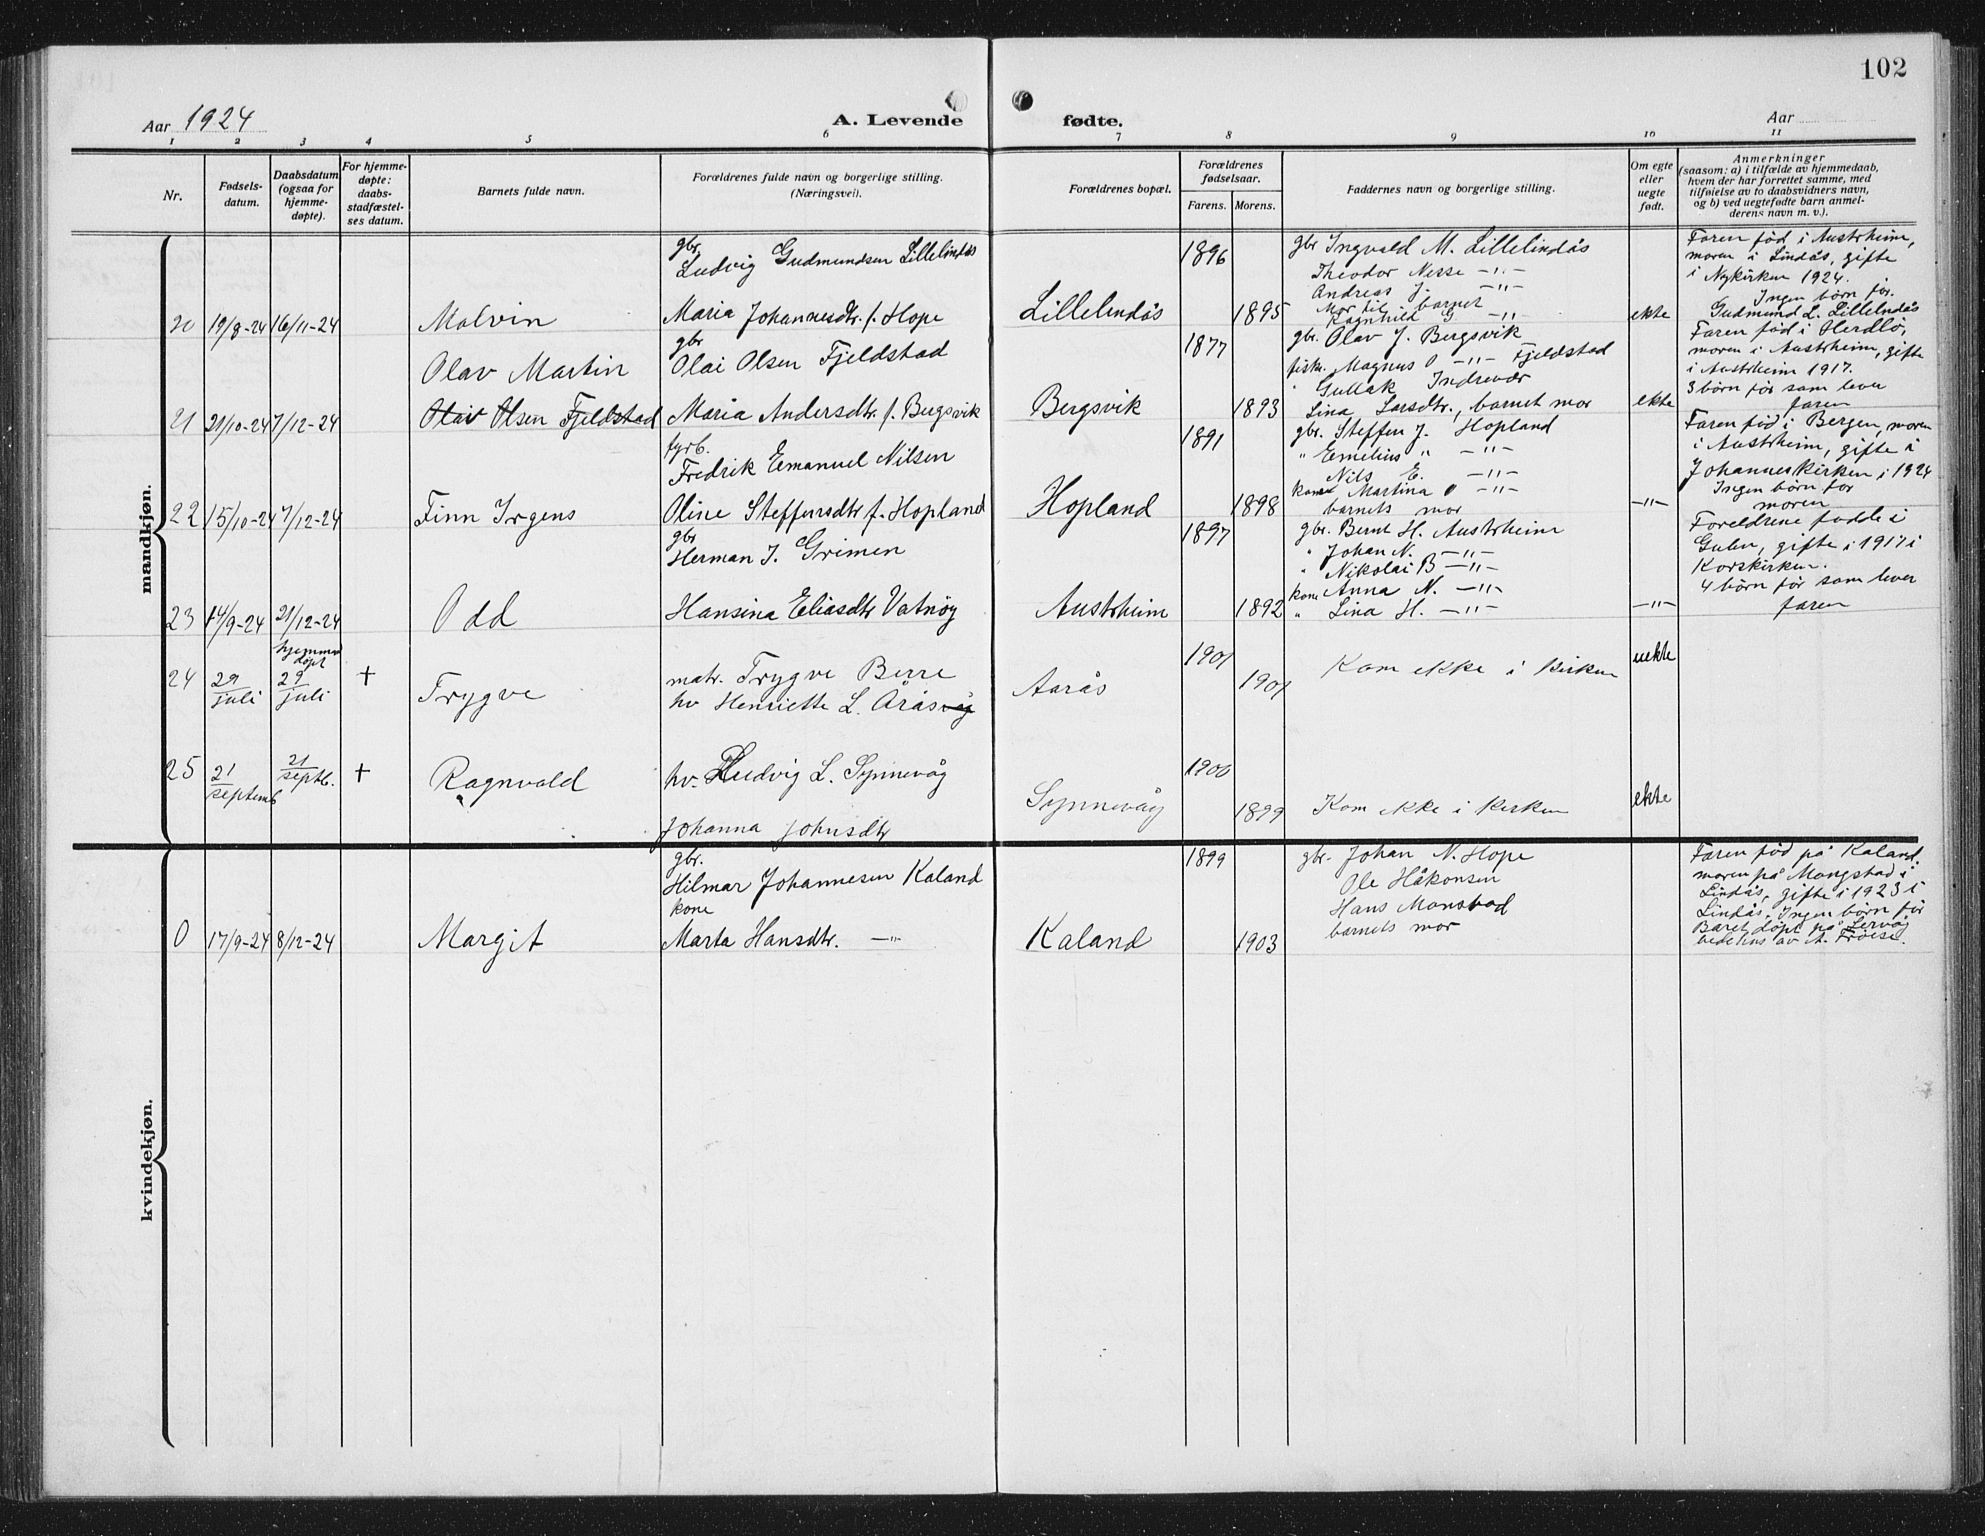 102
Aar 1924
A. Levende fødte.
Aar
1 2 3 4 5 6 7 8 9 10 11
Nr.
Fødsels-datum.
Daabsdatum (ogsaa for hjemme-døpte).
For hjemme-døpte: daabs-stadfæstel-ses datum.
Barnets fulde navn.
Forældrenes fulde navn og borgerlige stilling. (Næringsvei).
Forældrenes bopæl.
Forældrenes fødselsaar.
Farens. Morens.
Faddernes navn og borgerlige stilling.
Om egte eller uegte født.
Anmerkninger
(saasom: a) i tilfælde av hjemmedaab,
hvem der har forrettet samme, med
tilføielse av to daabsvidners navn,
og b) ved uegtefødte barn anmel-
derens navn m. v.).
mandkjøn.
20 19/9-24 16/11-24
Malvin
gbr
Ludvig Gudmundsen Lillelindås
Maria Johannesdtr. f. Hope
Lillelindås
1896
1895
gbr Ingvald M. Lillelindås
Theodor Nesse -"-
Andreas J. -"-
Mor til barnet
Ragnhild G -"-
ekte
Faren född i Austrheim,
moren i Lindås, gifte
i Nykirken 1924.
Ingen börn för.
Gudmund L. Lillelindås
21 21/10-24 7/12-24
Olav Martin
Olai Olsen Fjeldstad
gbr
Olai Olsen Fjeldstad
Maria Andersdtr. f. Bergsvik
Bergsvik
1877
1893
gbr. Olav J. Bergsvik
fisk. Magnus O -"- Fjeldstad
" Gullak Indrevær
Lina Larsdtr., barnet mor
ekte
Faren föd i Herdlö,
moren i Austrheim, gifte
i Austrheim 1917.
3 börn för som lever
faren
22 15/10-24 7/12-24
Finn Irgens
fyrb.
Fredrik Emanuel Nilsen
Oline Steffensdtr f. Hopland
Hopland
1891
1898
gbr. Steffen J. Hopland
" Emelius " -"-
Nils E. -"-
kone Martina O -"-
barnets mor
-"-
Faren föd i Bergen, moren
i Austrheim, gifte i
Johanneskirken i 1924
Ingen börn för
moren
23 14/9-24 21/12-24
Odd
gbr
Herman I. Grimen
Hansina Eliasdtr Vatnöy
Austrheim
1897
1892
gbr. Bernt H. Austrheim
" Johan N. -"-
" Nikolai B -"-
kone Anna N. -"-
" Lina H. -"-
-"-
Foreldrene fødde i
Gulen, gifte i 1917 i
Korskirken.
4 börn för som lever
faren
24 29/juli hjemmedöpt 29/juli +
Trygve
matr. Trygve Berre
hv Henriette L. Åråsvåg
Aarås
1901
1901
Kom ekke i kirken
uekte
25 21/septemb 21/septb. +
Ragnvald
hv. Ludvig L. Synnevåg
Johanna Johnsdtr
Synnevåg
1900
1899
Kom ekke i kirken
ekte
kvindekjøn.
0 17/9-24 8/12-24
Margit
gbr.
Hilmar Johannesen Kaland
kone
Marta Hansdtr. -"-
Kaland
1899
1903
gbr. Johan N. Hope
Ole Håkonsen
Hans Monstad
barnets mor
Faren föd på Kaland,
moren på Mongstad i
Lindås, gifte i 1923 i
Lindås, Ingen börn för
Baret döpt på Lervåg
bedehus av A. Fröise.